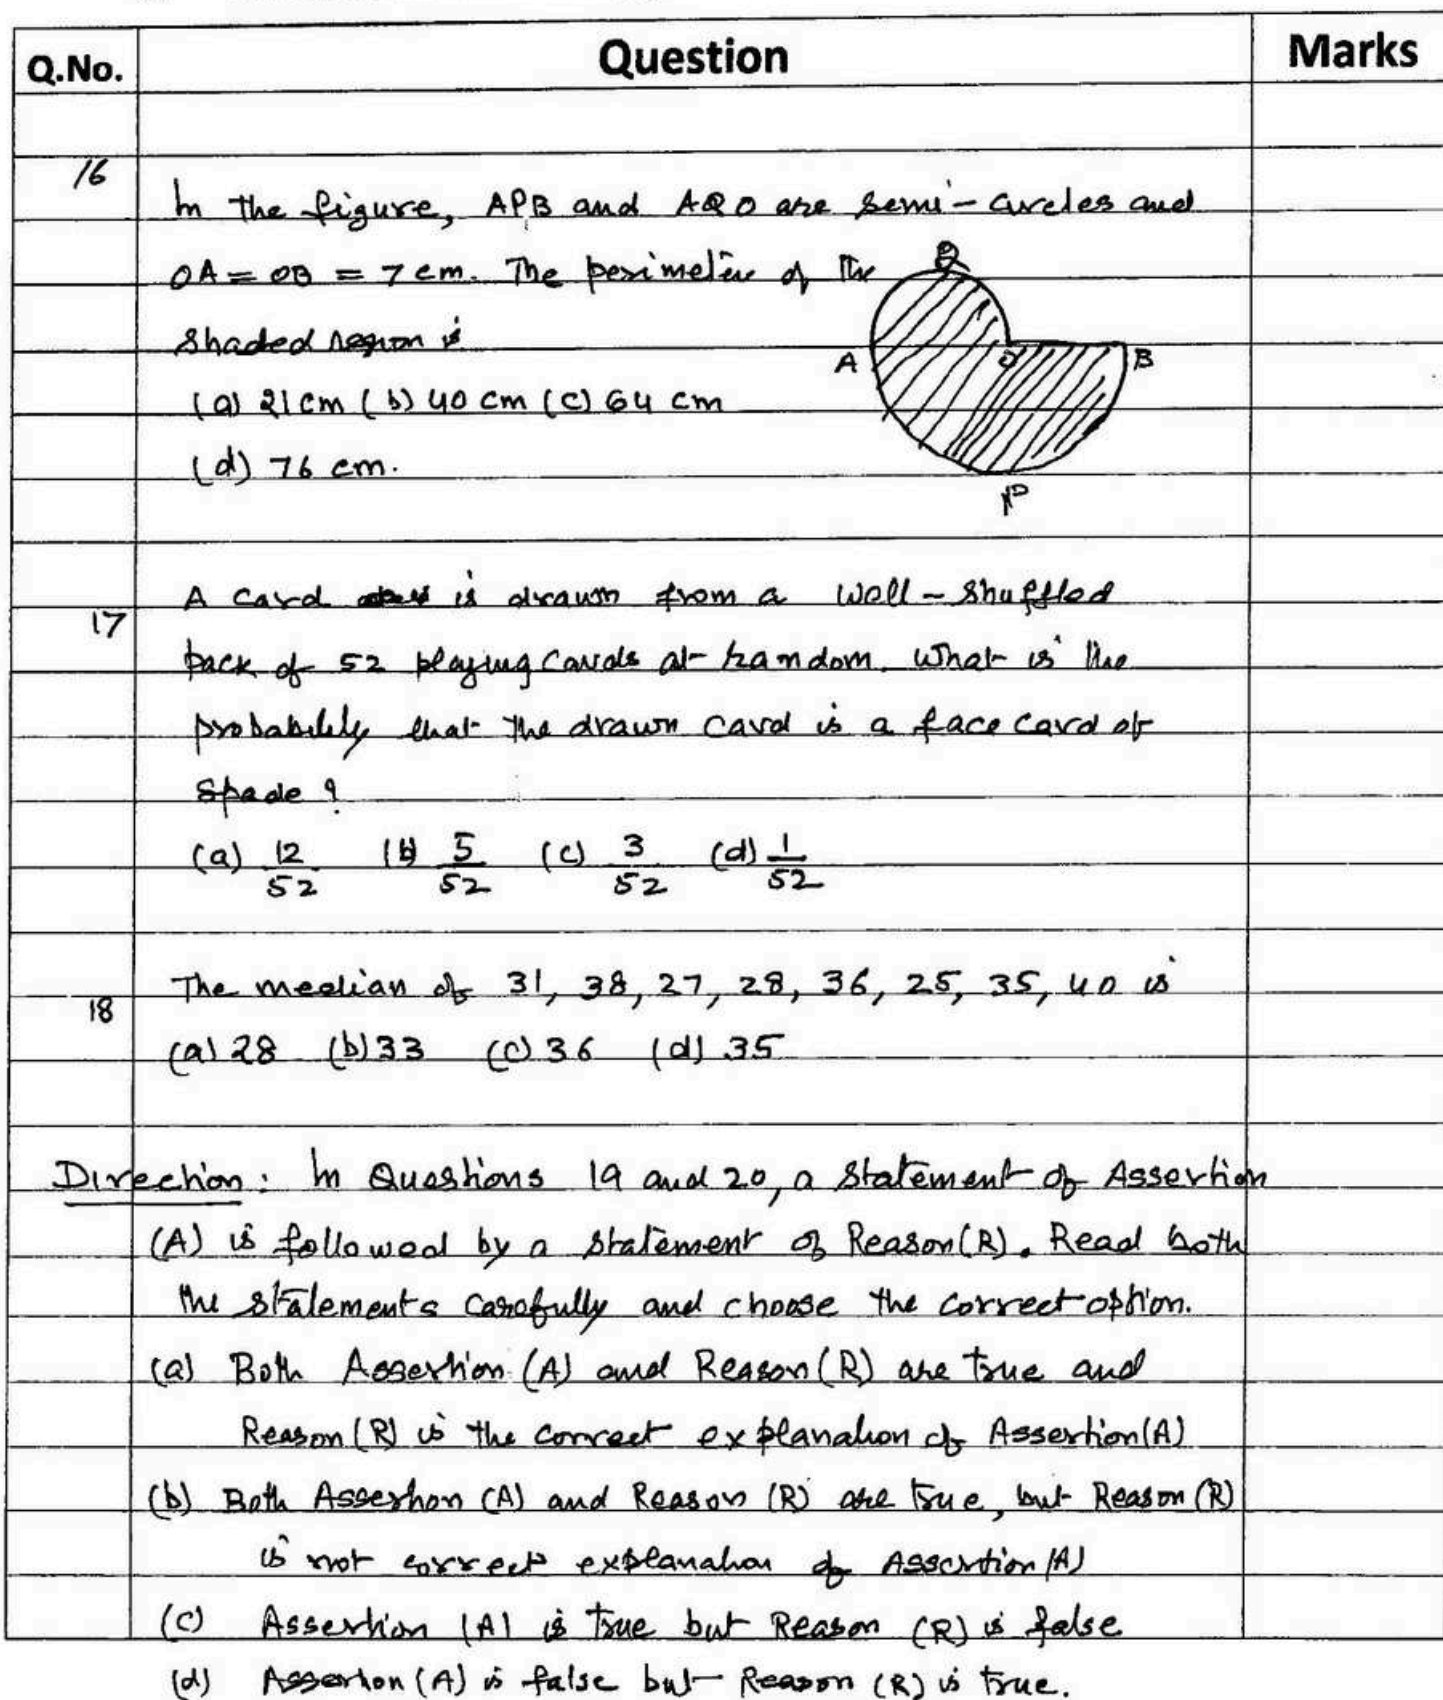 Q.No. Question Marks
16
In the figure, APB and AQO are semi-circles and
OA = OB = 7 cm. The perimeter of the
shaded region is
(a) 21 cm (b) 40 cm (c) 64 cm
(d) 76 cm.
Q
A O B
P
17 A card is drawn from a well-shuffled
pack of 52 playing cards at random. What is the
probability that the drawn card is a face card of
spade?
(a) 12/52 (b) 5/52 (c) 3/52 (d) 1/52
18 The median of 31, 38, 27, 28, 36, 25, 35, 40 is
(a) 28 (b) 33 (c) 36 (d) 35
Direction: In Questions 19 and 20, a statement of Assertion
(A) is followed by a statement of Reason (R). Read both
the statements carefully and choose the correct option.
(a) Both Assertion (A) and Reason (R) are true and
Reason (R) is the correct explanation of Assertion (A)
(b) Both Assertion (A) and Reason (R) are true, but Reason (R)
is not correct explanation of Assertion (A)
(c) Assertion (A) is true but Reason (R) is false
(d) Assertion (A) is false but Reason (R) is true.